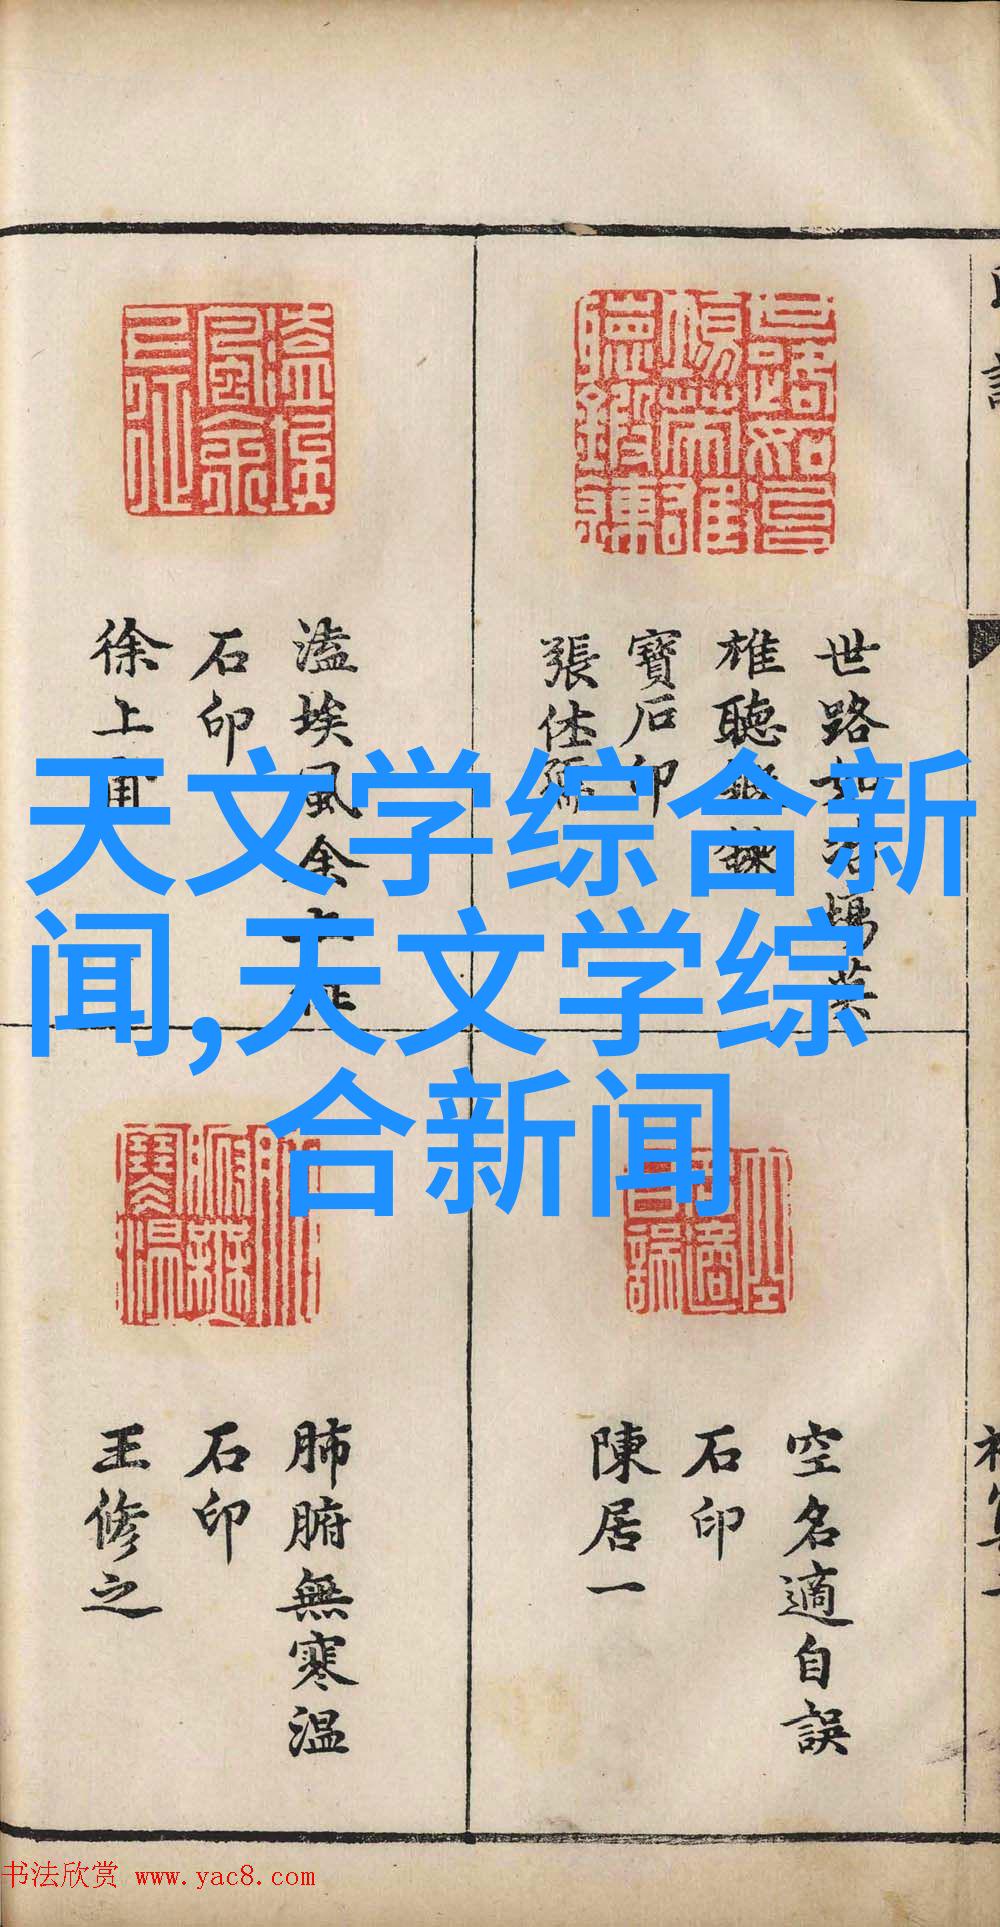 天文学综合新
闻,天文学综
合新闻
世路如
雄聽
寶石印
張
溘埃風余上征
石印
徐上
空名適自誤
石印
陳居一
肺腑無寒温
石印
王修之
书法欣赏 www.yac8.com